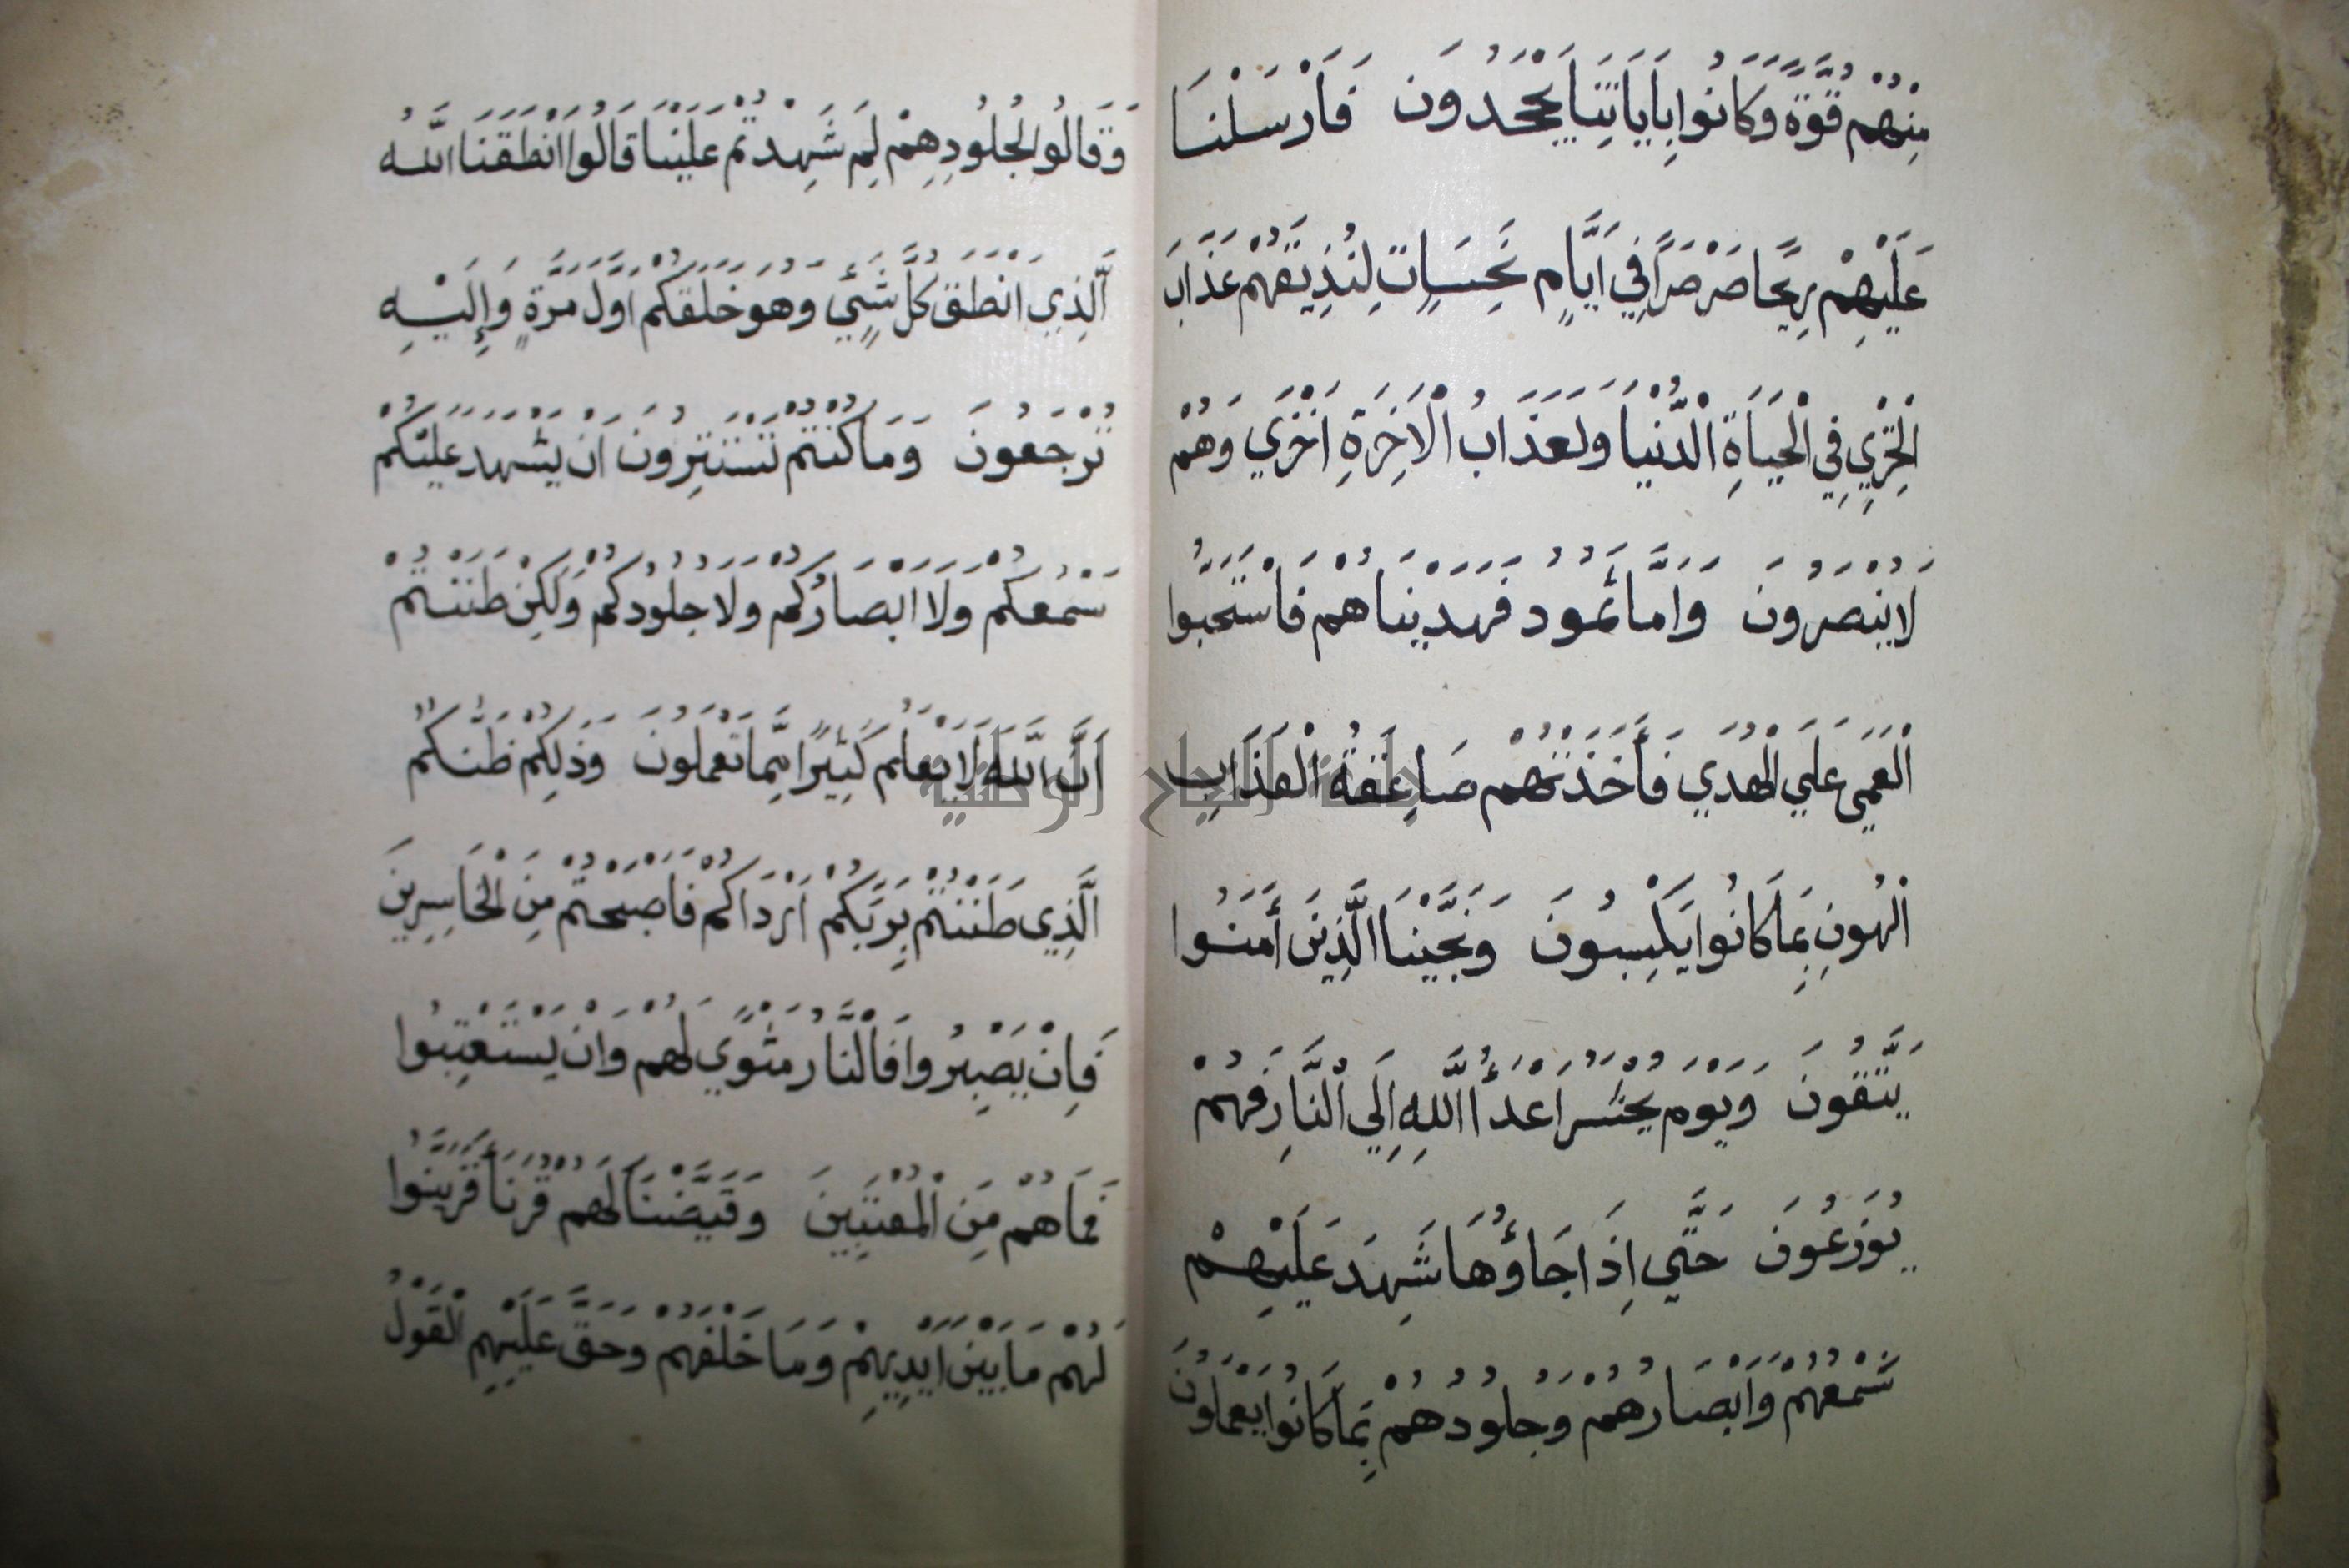 مِنْهُمْ قُوَّةً وَكَانُوا بِاَيَاتِنَا يَجْحَدُونَ فَاَرْسَلْنَا
عَلَيْهِمْ رِيحًا صَرْصَرًا فِي اَيَّامٍ نَحِسَاتٍ لِنُذِيقَهُمْ عَذَابَ
الْخِزْيِ فِي الْحَيَاةِ الْدُّنْيَا وَلَعَذَابُ الْاَخِرَةِ اَخْزَي وَهُمْ
لَا يُنْصَرُونَ وَاَمَّا ثَمُودُ فَهَدَيْنَاهُمْ فَاسْتَحَبُّوا
الْعَمَي عَلَي الْهُدَي فَأَخَذَتْهُمْ صَاعِقَةُ الْعَذَابِ
الْهُونِ بِمَا كَانُوا يَكْسِبُونَ وَنَجَّيْنَا الَّذِينَ أَمَنُوا
يَتَّقُونَ وَيَوْمَ يُحْشَرُ اَعْدَأُ اللَّهِ اِلَي الْنَّارِ فَهُمْ
يُوزَعُونَ حَتَّي اِذَا جَاؤُهَا شَهِدَ عَلَيْهِمْ
سَمْعُهُمْ وَاَبْصَارُهُمْ وَجُلُودُهُمْ بِمَا كَانُوا يَعْمَلُونَ
وَقَالُوا لِجُلُودِهِمْ لِمَ شَهِدْتُمْ عَلَيْنَا قَالُوا اَنْطَقَنَا اللَّهُ
الَّذِي اَنْطَقَ كُلَّ شَيْئٍ وَهُوَ خَلَقَكُمْ اَوَّلَ مَرَّةٍ وَإِلَيْهِ
تُرْجَعُونَ وَمَا كُنْتُمْ تَسْتَتِرُونَ اَنْ يَشْهَدَ عَلَيْكُمْ
سَمْعُكُمْ وَلَا اَبْصَارُكُمْ وَلَا جُلُودُكُمْ وَلَكِنْ ظَنَنْتُمْ
اَنَّ اللَّهَ لَا يَعْلَمُ كَثِيرًا مِمَّا تَعْمَلُونَ وَذَلِكُمْ ظَنُّكُمُ
الَّذِي ظَنَنْتُمْ بِرَبِّكُمْ اَرْدَاكُمْ فَاَصْبَحْتُمْ مِنَ الْخَاسِرِينَ
فَاِنْ يَصْبِرُوا فَالْنَّارُ مَثْوًي لَهُمْ وَاَنْ يَسْتَعْتِبُوا
فَمَا هُمْ مِنَ الْمُعْتَبِينَ وَقَيَّضْنَا لَهُمْ قُرَنَأَ فَزَيَّنُوا
لَهُمْ مَا بَيْنَ اَيْدِيهِمْ وَمَا خَلْفَهُمْ وَحَقَّ عَلَيْهِمِ الْقَوْلُ